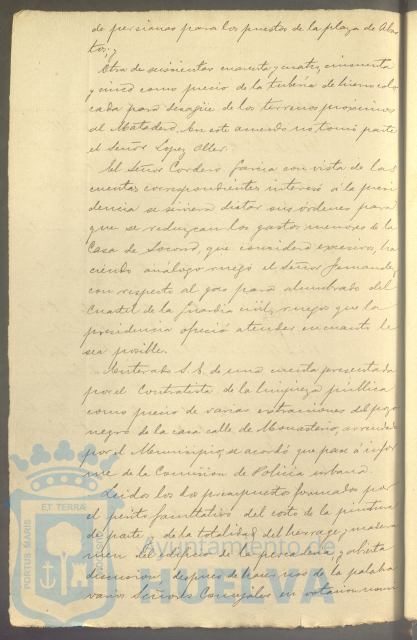 de persianas para los puestos de la plaza de Abas
tos.
Otra de seiscientas cuarenta y cuatro, cincuenta
y cinco como precio de la tubería de hierro colo
cada para desagüe de los terrenos próximos
al Matadero. En este acuerdo no tomó parte
el Señor Lopez Oller.
El Señor Cordero Garcia con vista de las
cuentas correspondientes interesó á la presi
dencia se sirviera dictar sus órdenes para
que se reduzcan los gastos menores de la
Casa de Socorro, que considera excesivos, ha
ciendo análogo ruego el Señor Fernandez
con respecto al gas para alumbrado del
Cuartel de la Guardia civil, ruegos que la
presidencia ofreció atender en cuanto le
sea posible.
Enterado S. E. de una cuenta presentada
por el Contratista de la limpieza pública
como precio de varias extracciones del pozo
negro de la casa calle de Monasterio, arrendada
por el Municipio, se acordó que pase á infor
me de la Comisión de Policía urbana.
Leidos los dos presupuestos formados por
el perito facultativo del costo de la pintura
de parte y de la totalidad del herraje y madera
men del de la y abierta
discusion, despues de hacer uso de la palabra
varios Señores Concejales en
PORTUS MARIS
ET TERRA
Ayuntamiento de
HUELVA